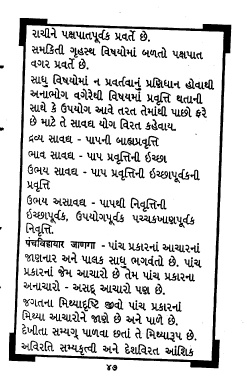 રાચીને પક્ષપાતપૂર્વક પ્રવર્તે છે.
સમકિતી ગૃહસ્થ વિષયોમાં બળતો પક્ષપાત
વગર પ્રવર્તે છે.
સાધુ વિષયોમાં ન પ્રવર્તવાનું પ્રણિધાન હોવાથી
અનાભોગ વગેરેથી વિષયમાં પ્રવૃત્તિ થતાની
સાથે કે ઉપયોગ આવે તરત તેમાંથી પાછો ફરે
છે માટે તે સાવદ્ય યોગ વિરત કહેવાય.
દ્રવ્ય સાવદ્ય - પાપની બાહ્યપ્રવૃત્તિ
ભાવ સાવદ્ય - પાપ પ્રવૃત્તિની ઈચ્છા
ઉભય સાવદ્ય - પાપ પ્રવૃત્તિની ઈચ્છાપૂર્વકની
પ્રવૃત્તિ
ઉભય અસાવદ્ય - પાપથી નિવૃત્તિની
ઈચ્છાપૂર્વક, ઉપયોગપૂર્વક પચ્ચકખાણપૂર્વક
નિવૃત્તિ.
પંચવિહાયાર જાણગા - પાંચ પ્રકારનાં આચારનાં
જાણનાર અને પાલક સાધુ ભગવંતો છે. પાંચ
પ્રકારનાં જેમ આચારો છે તેમ પાંચ પ્રકારના
અનાચારો - અસદ્ આચારો પણ છે.
જગતના મિથ્યાદૃષ્ટિ જીવો પાંચ પ્રકારનાં
મિથ્યા આચારોને જાણે છે અને પાળે છે.
દેખીતા સમ્યગ્ પાળવા છતાં તે મિથ્યારૂપ છે.
અવિરતિ સમ્યકત્વી અને દેશવિરત આંશિક
૪૭